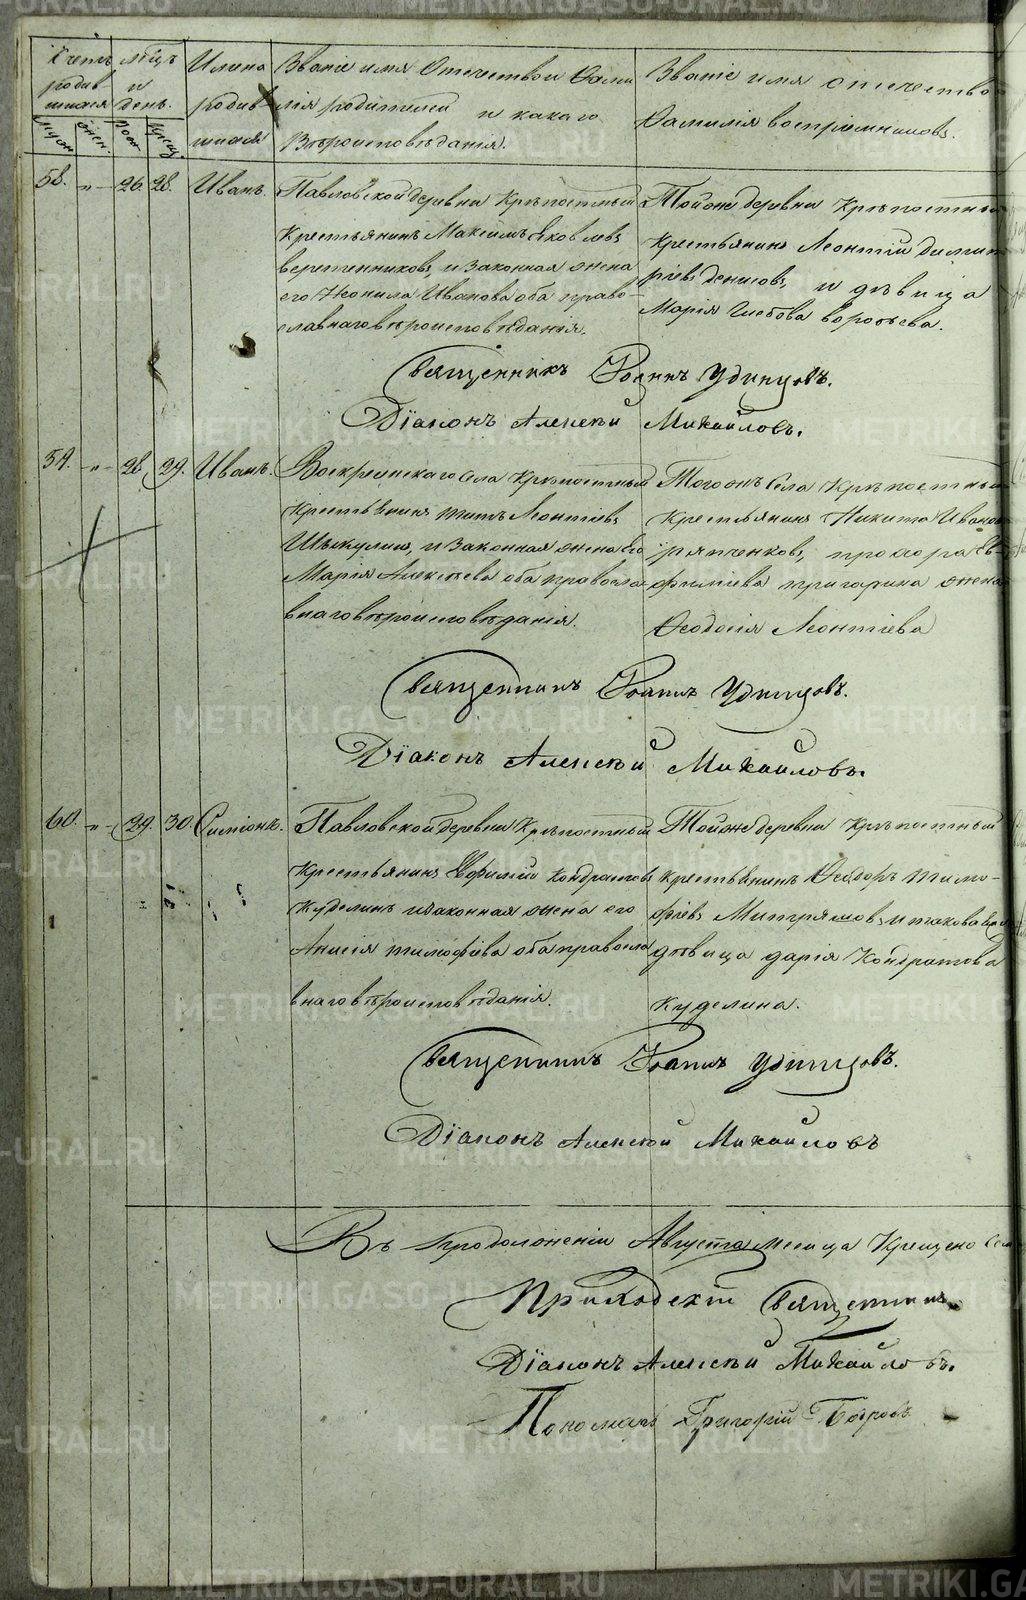 Счетъ родив шихся
Муж. Жен.
мѣсяцъ и день.
Рож. Крещ.
Имена родив шихся
Званіе имя Отечество и Фами
лія родителей и какаго
Вѣроисповѣданія.
Званіе имя отечество
Фамилія воспріемниковъ.
58. „ 26 28. Иванъ.
Павловской деревни Крѣпостный
Крестьянинъ Максимъ Яковлевъ
веретенниковъ, и Законная жена
его Неонила Иванова оба право-
славнаго вѣроисповѣданія.
Тойже деревни Крѣпостный
Крестьянинъ Леонтій дими
ріевъ денисовъ, и дѣвица
Марія Глебова воробьева.
Священникъ Іоаннъ Удинцовъ.
Діаконъ Алексѣй Михайловъ.
59. „ 28 29. Иванъ.
Воскресенскаго Села Крѣпостный
Крестьянинъ титъ Леонтіевъ
и Законная жена его
Марія Алексѣева оба правосла
внаго вѣроисповѣданія.
Тогожъ Села Крѣпостный
Крестьянинъ Никита Иванов
фиміева пригарина жена
Феодосія Леонтіева
Священникъ Іоаннъ Удинцовъ.
Діаконъ Алексѣй Михайловъ.
60. „ 29. 30. Симеонъ.
Павловской деревни Крѣпостный
Крестьянинъ Ефимій Кондратовъ
Куделинъ и законная жена его
Анисія тимофѣева оба правосла
внаго вѣроисповѣданія.
Тойже деревни Крѣпостный
Крестьянинъ Феодоръ тимо-
фіевъ Митряшовъ и таковаяже
дѣвица дарія Кондратова
Куделина.
Священникъ Іоаннъ Удинцовъ.
Діаконъ Алексѣй Михайловъ
Въ продолженіи Августа месяца Крещено
Приходскій Священникъ
Діаконъ Алексѣй Михайловъ.
Пономарь Григорій
METRIKI.GASO-URAL.RU